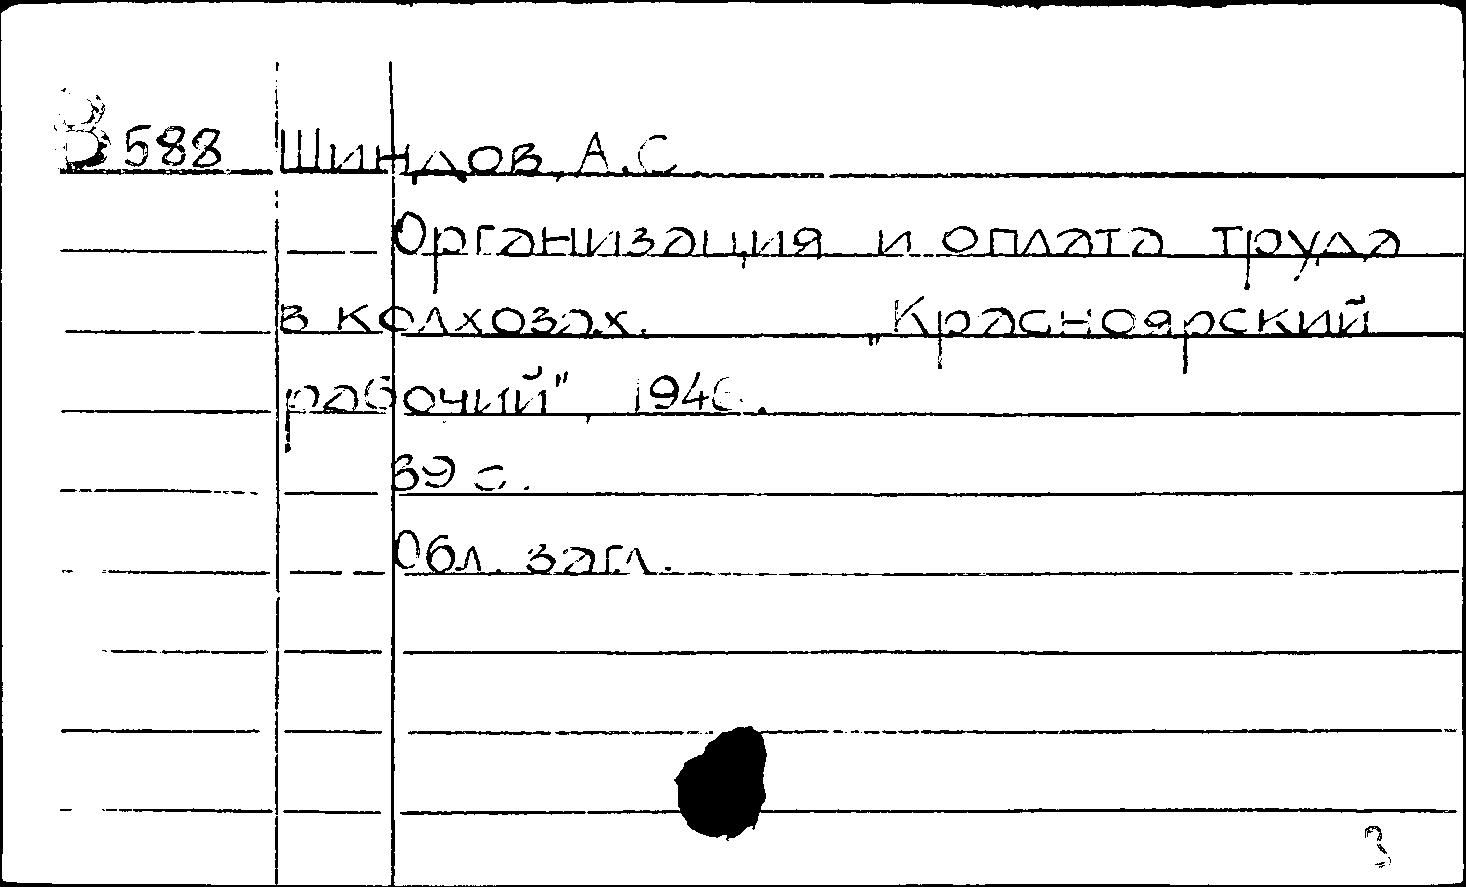 В 588 Шиндов, А.С
Организация и оплата труда
в колхозах. „Красноярский
рабочий", 1946.
39 с.
Обл. загл.
3